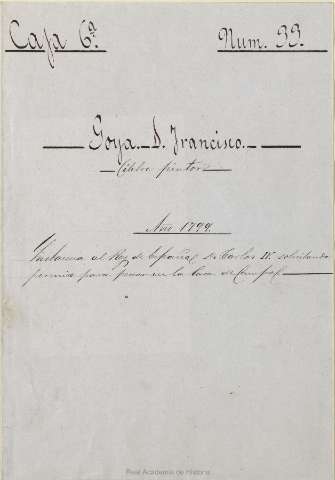 Caja 6ª Num. 99.
Goya. D. Francisco.
Célebre pintor
Año 1799.
Instancia al Rey de España D. Carlos IV. solicitando
permiso para pasar en la Casa de Campo
Real Academia de Historia